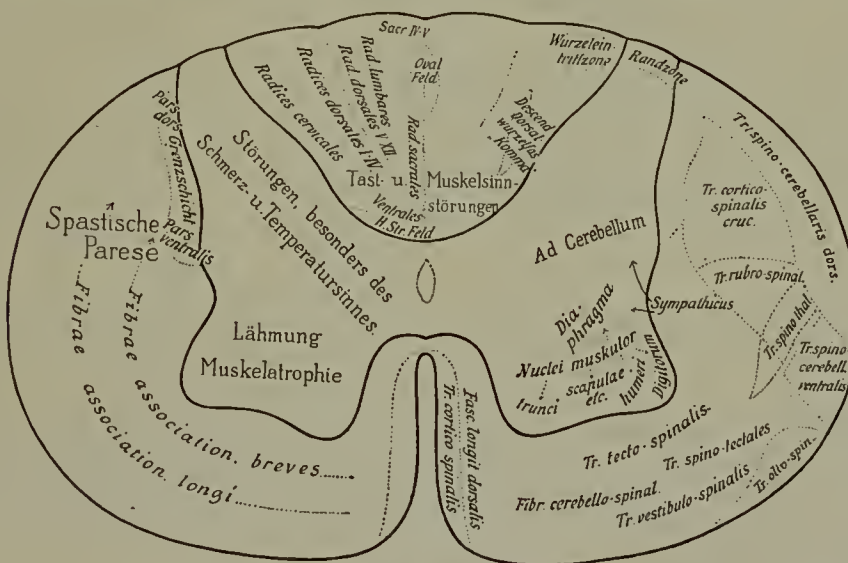 Sacr IV-V
Oval
Feld
Wurzelein-
trittzone
Randzone
Radices cervicales
Radices dorsales I-IV
Rad. dorsales V XII.
Rad. lumbares
Rad sacrales
Descend
dorsal.
wurzelfas
Komma
Tast- u. Muskelsinn-
störungen
Ventrales
H. Str. Feld
Pars
dors
Grenzschicht
Pars
ventralis
Störungen, besonders des
Schmerz- u. Temperatursinnes.
Spastische
Parese
Lähmung
Muskelatrophie
Fibrae association. breves
Fibrae association. longi
Ad Cerebellum
Sympathicus
Dia-
phragma
Nuclei muskulor
trunci
scapulae
etc.
humeri
Digitorum
Tr. spino-cerebellaris dors.
Tr. cortico-
spinalis
cruc.
Tr. rubro-spinal.
Tr. spino thal.
Tr. spino
cerebell.
ventralis
Fasc longit dorsalis
Tr. cortico spinalis
Tr. tecto-spinalis-
Tr. spino-tectales
Fibr. cerebello-spinal.
Tr. vestibulo-spinalis
Tr. olivo-spin.